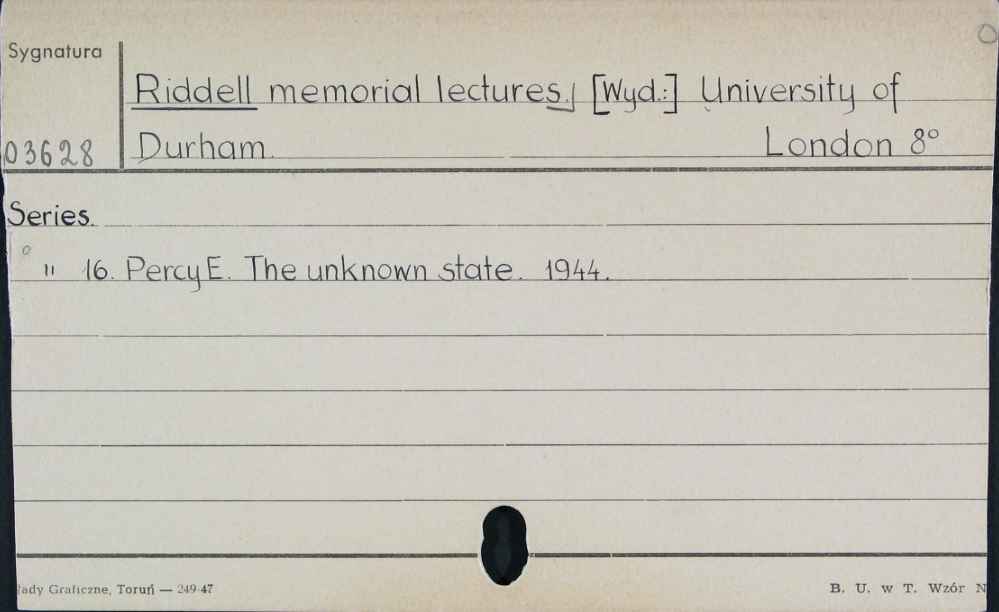 Sygnatura
Riddell memorial lectures.] [Wyd.:] University of
03628 Durham. London 8°
Series.
" 16. Percy E. The unknown state. 1944.
łady Graficzne, Toruń — 249-47
B. U. w T. Wzór N